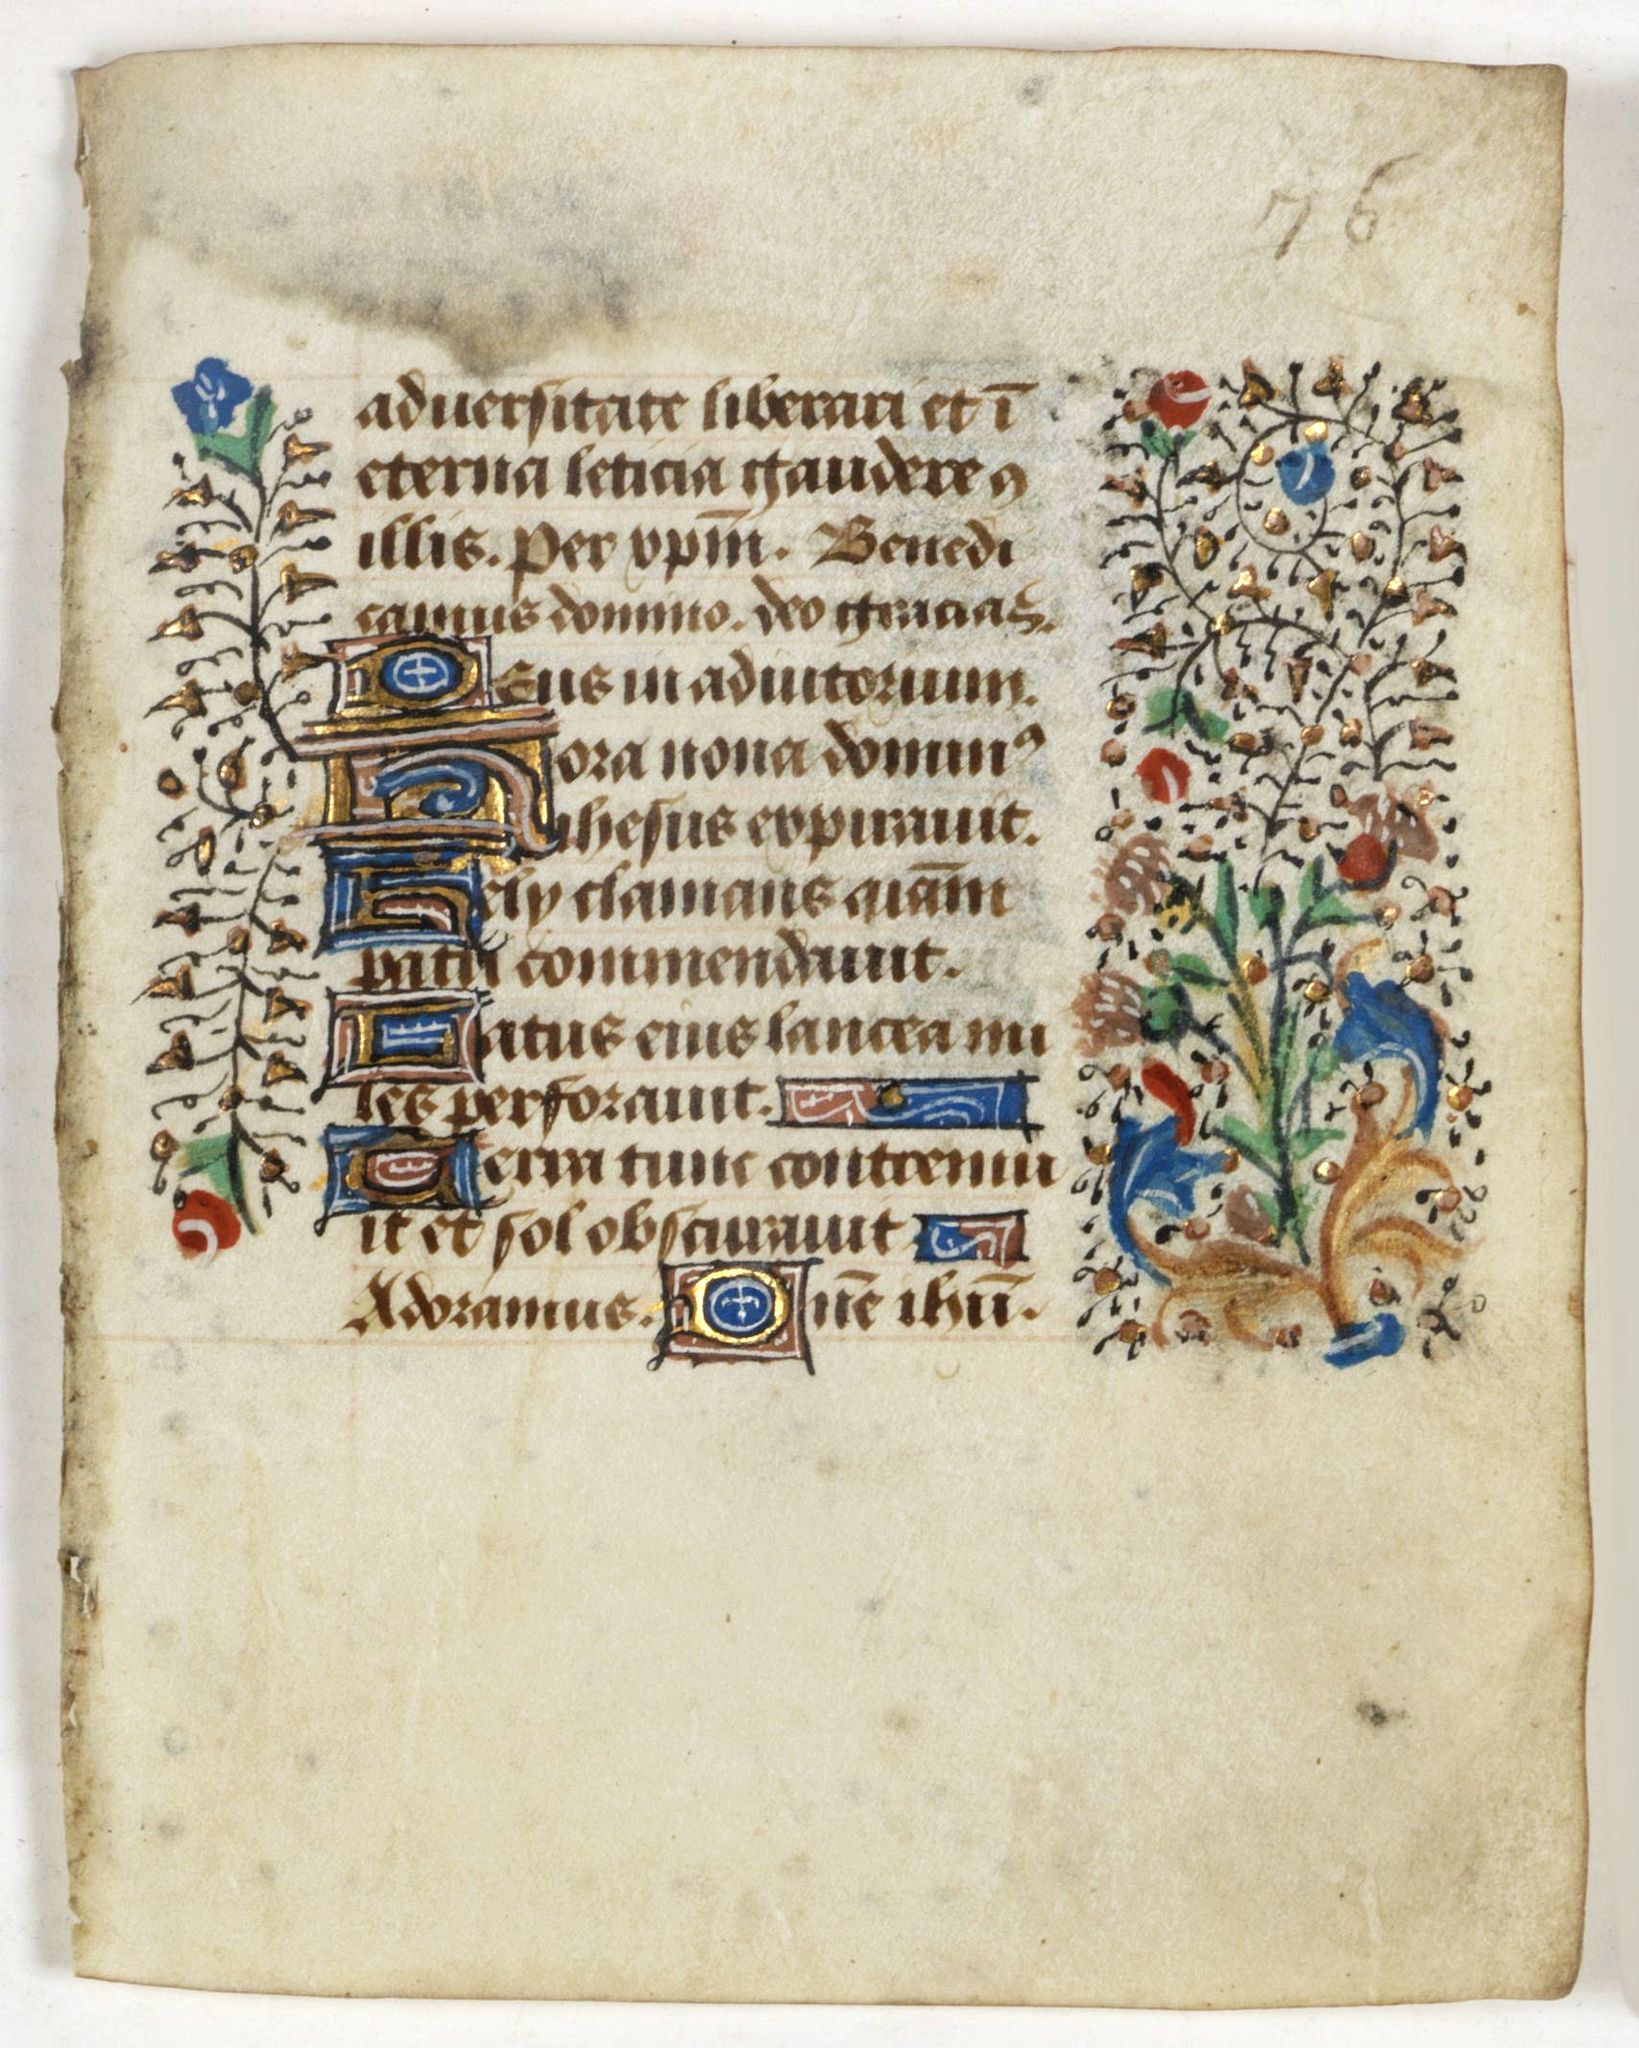 76
aduersitate liberari et ī
eterna leticia gaudere ꝯ
illis. Per xp̄m. Benedi
camus domino. deo gracias.
Deus in adiutorium.
Hora nona dominꝰ
ihesus expirauit.
Hely clamans aīam
patri commendauit.
Latus eius lancea mi
les perforauit.
Terra tunc contremu
it et sol obscurauit
Adoramus. Dn̄e ihū.